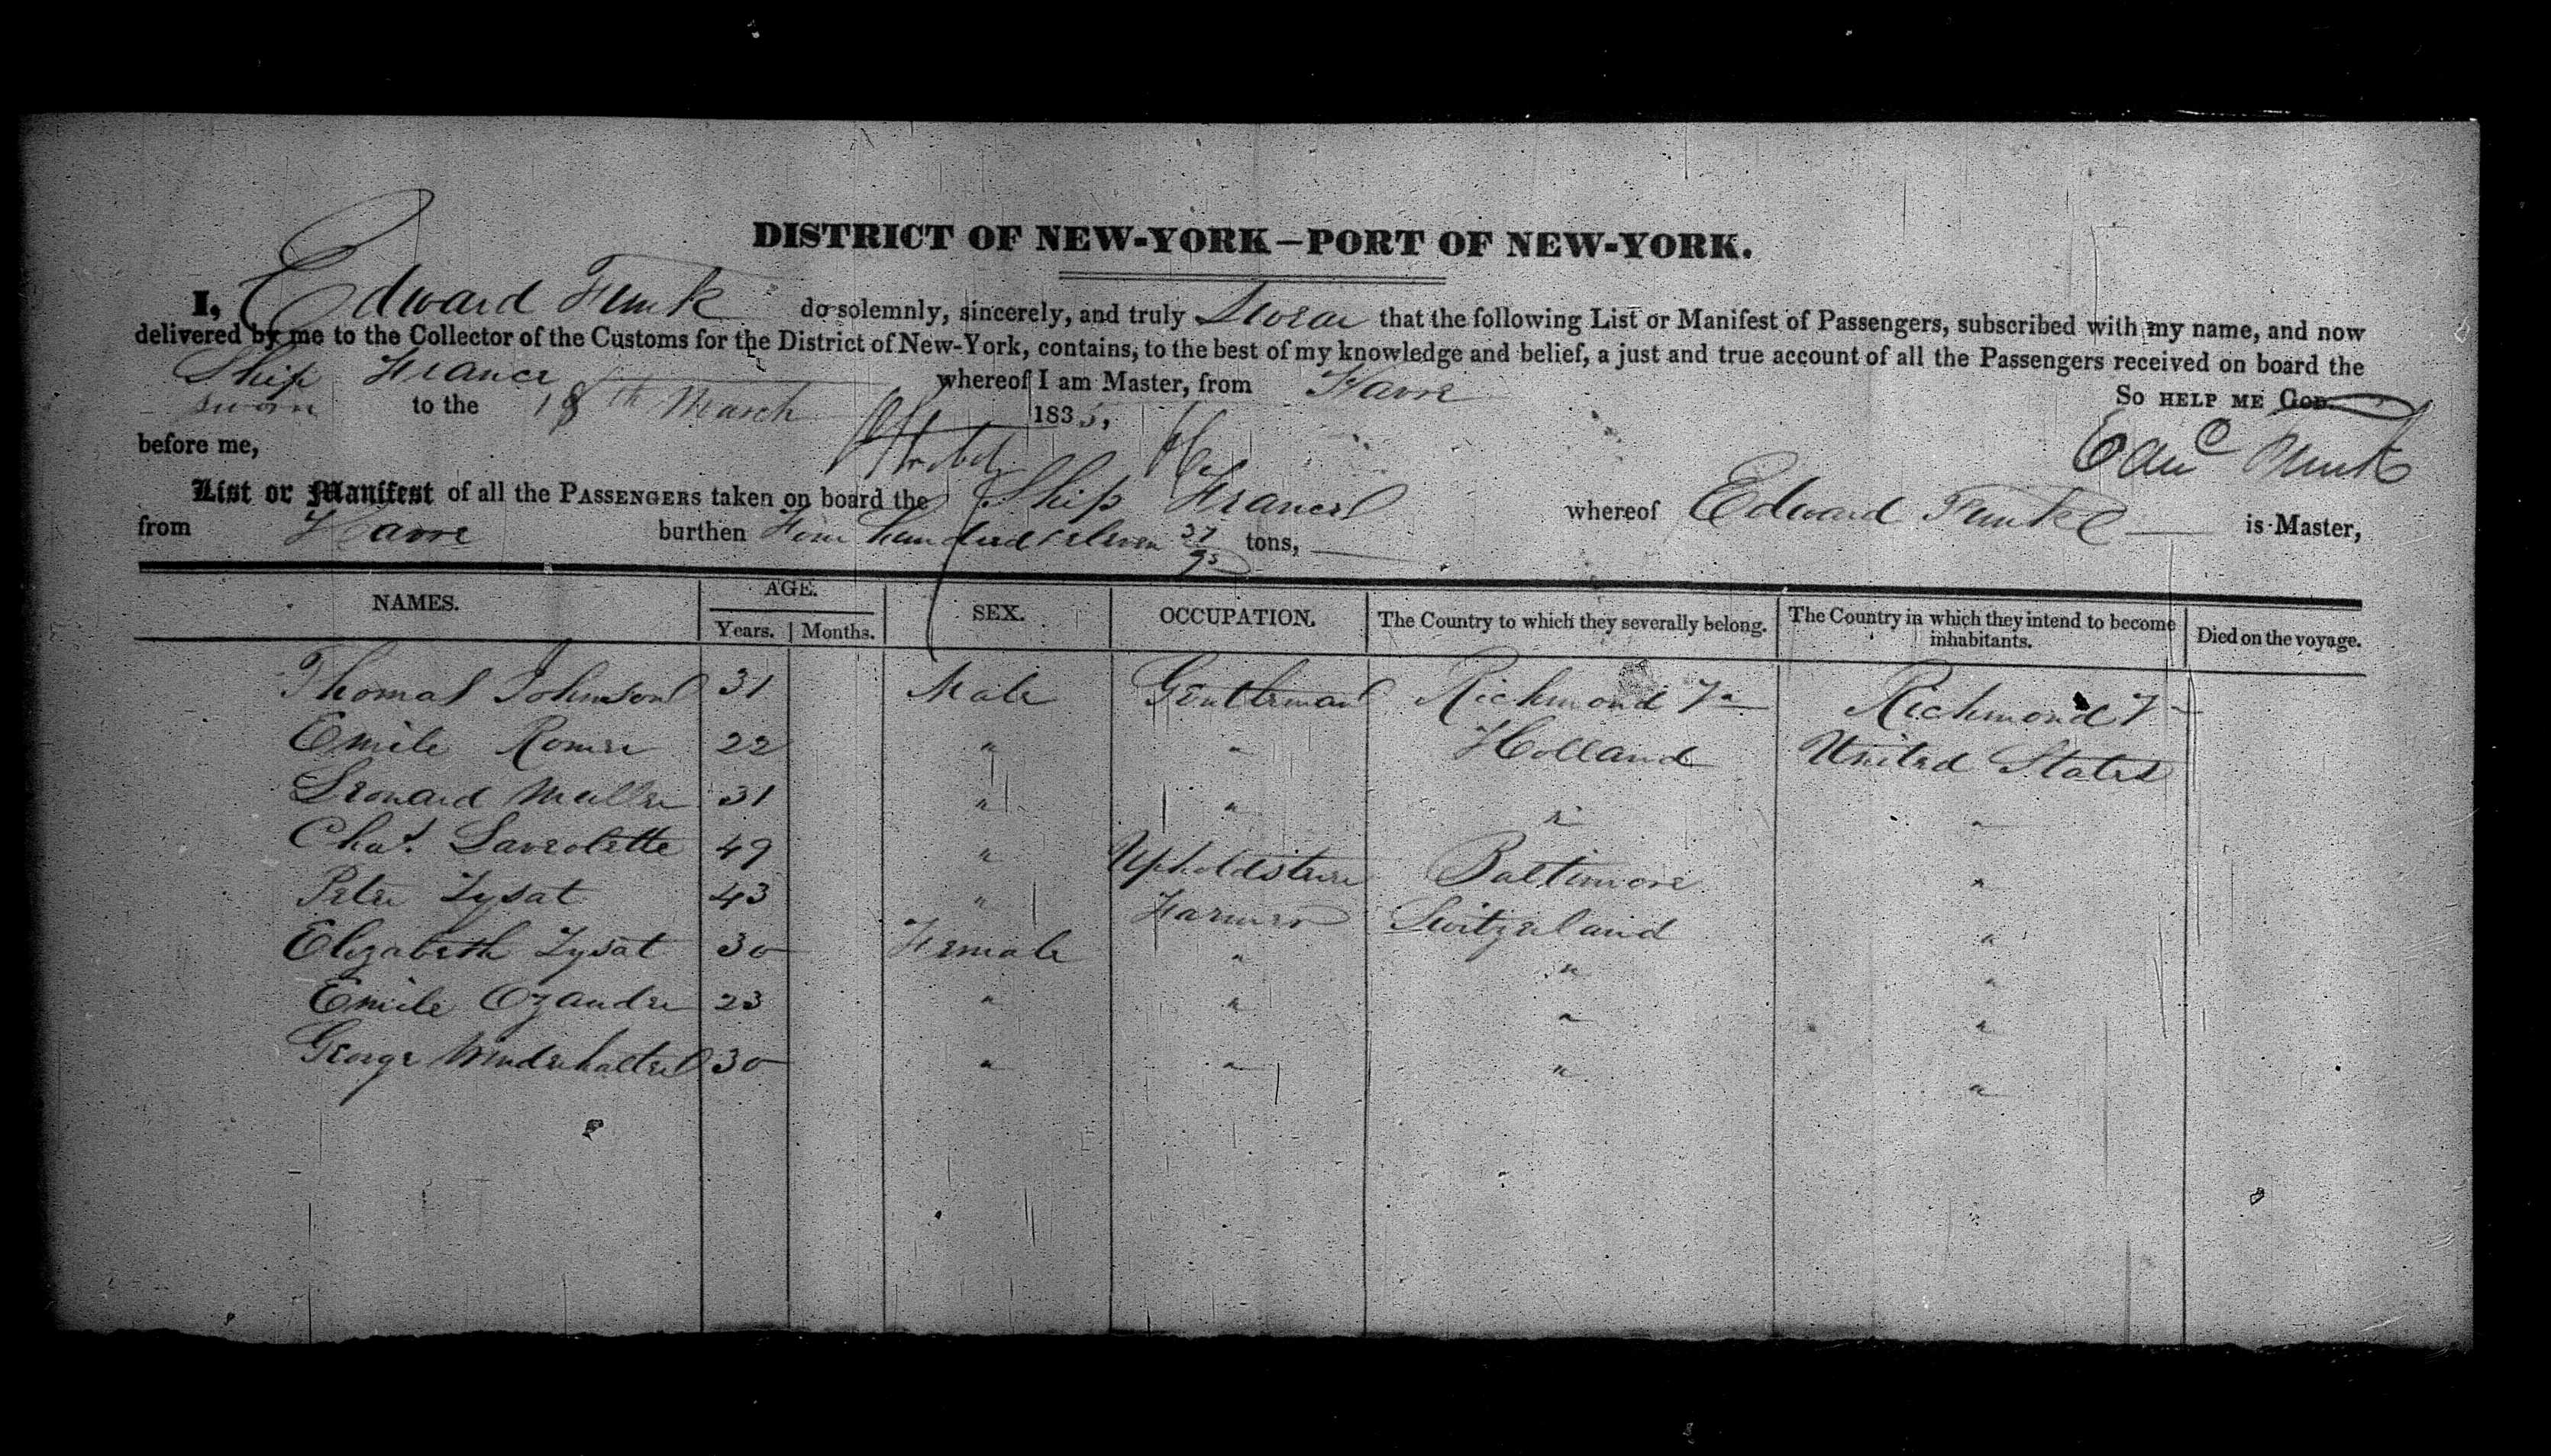 DISTRICT OF NEW-YORK—PORT OF NEW-YORK.
I, Edward Funk do solemnly, sincerely, and truly Swear that the following List or Manifest of Passengers, subscribed with my name, and now
delivered by me to the Collector of the Customs for the District of New-York, contains, to the best of my knowledge and belief, a just and true account of all the Passengers received on board the
Ship France whereof I am Master, from Havre
So HELP ME GOD.
Sworn to the 18th March 1835,
before me, Edwd Funk
List or Manifest of all the PASSENGERS taken on board the Ship France whereof Edward Funk is Master,
from Havre burthen Four hundred eleven 37/95 tons,
NAMES. AGE. SEX. OCCUPATION. The Country to which they severally belong. The Country in which they intend to become inhabitants. Died on the voyage.
Years. Months.
Thomas Johnson 31 Male Gentleman Richmond Va Richmond V
Emile Romer 22 " " Holland United States
Leonard Muller 31 " " " "
Chas. Laverolette 49 " Upholdsterer Baltimore "
Peter Zysat 43 " Farmer Switzerland "
Elizabeth Zysat 30 Female " " "
Emile Ozander 23 " " " "
George 30 " " " "